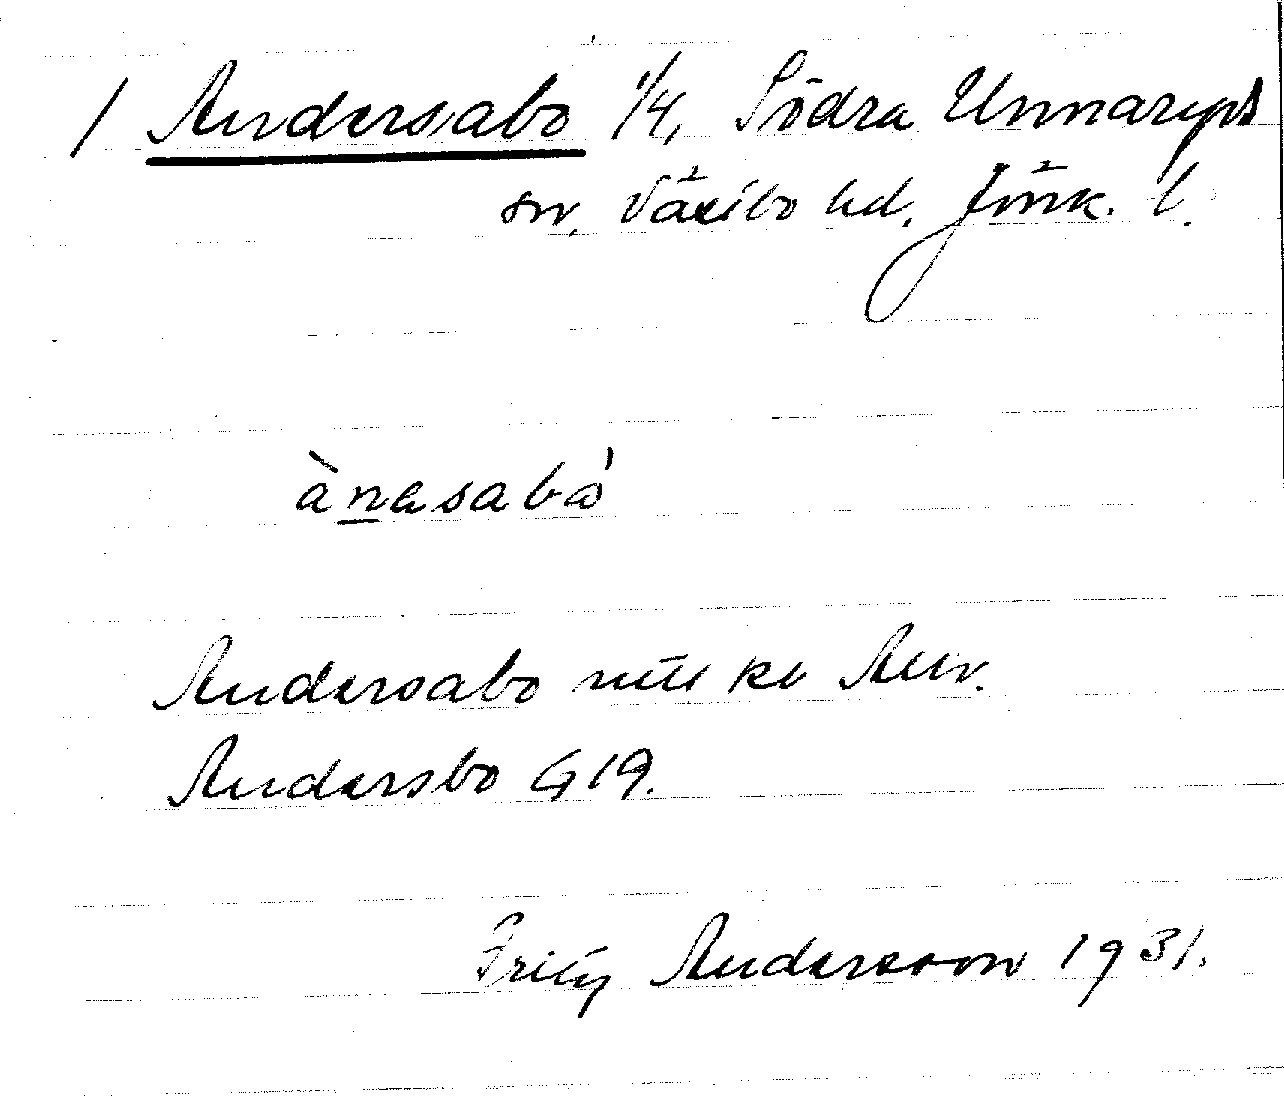 / Andersabo 1/4, Södra Unnaryds
sn, Västbo hd, Jönk. l.
ànasabó
Andersabo
Andersbo G 19.
Fritz Andersson 1931.